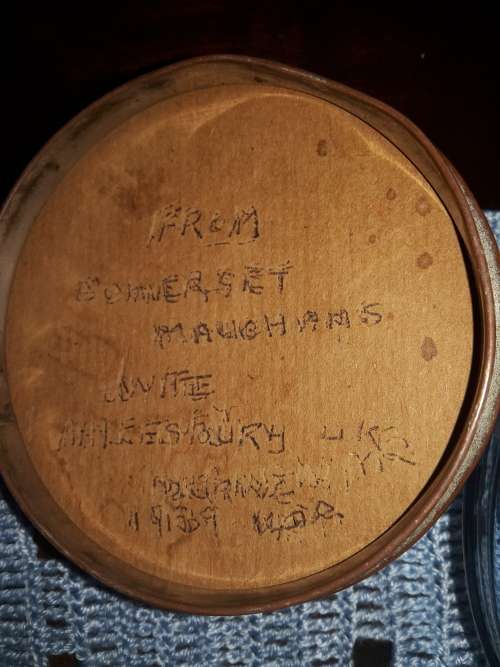 FROM
SOMERSET
MAUGHAMS
WIFE
AYLESBURY UK
1939 WAR